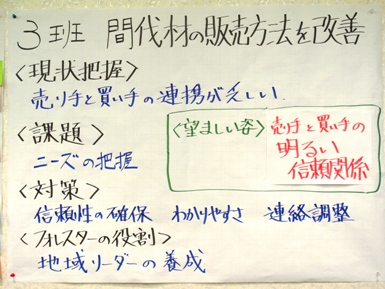 3班 間伐材の販売方法を改善
<現状把握>
売り手と買い手の連携が乏しい.
<課題>
ニーズの把握
<望ましい姿>
売り手と買い手の
明るい
信頼関係
<対策>
信頼性の確保 わかりやすさ 連絡調整
<フォレスターの役割>
地域リーダーの養成